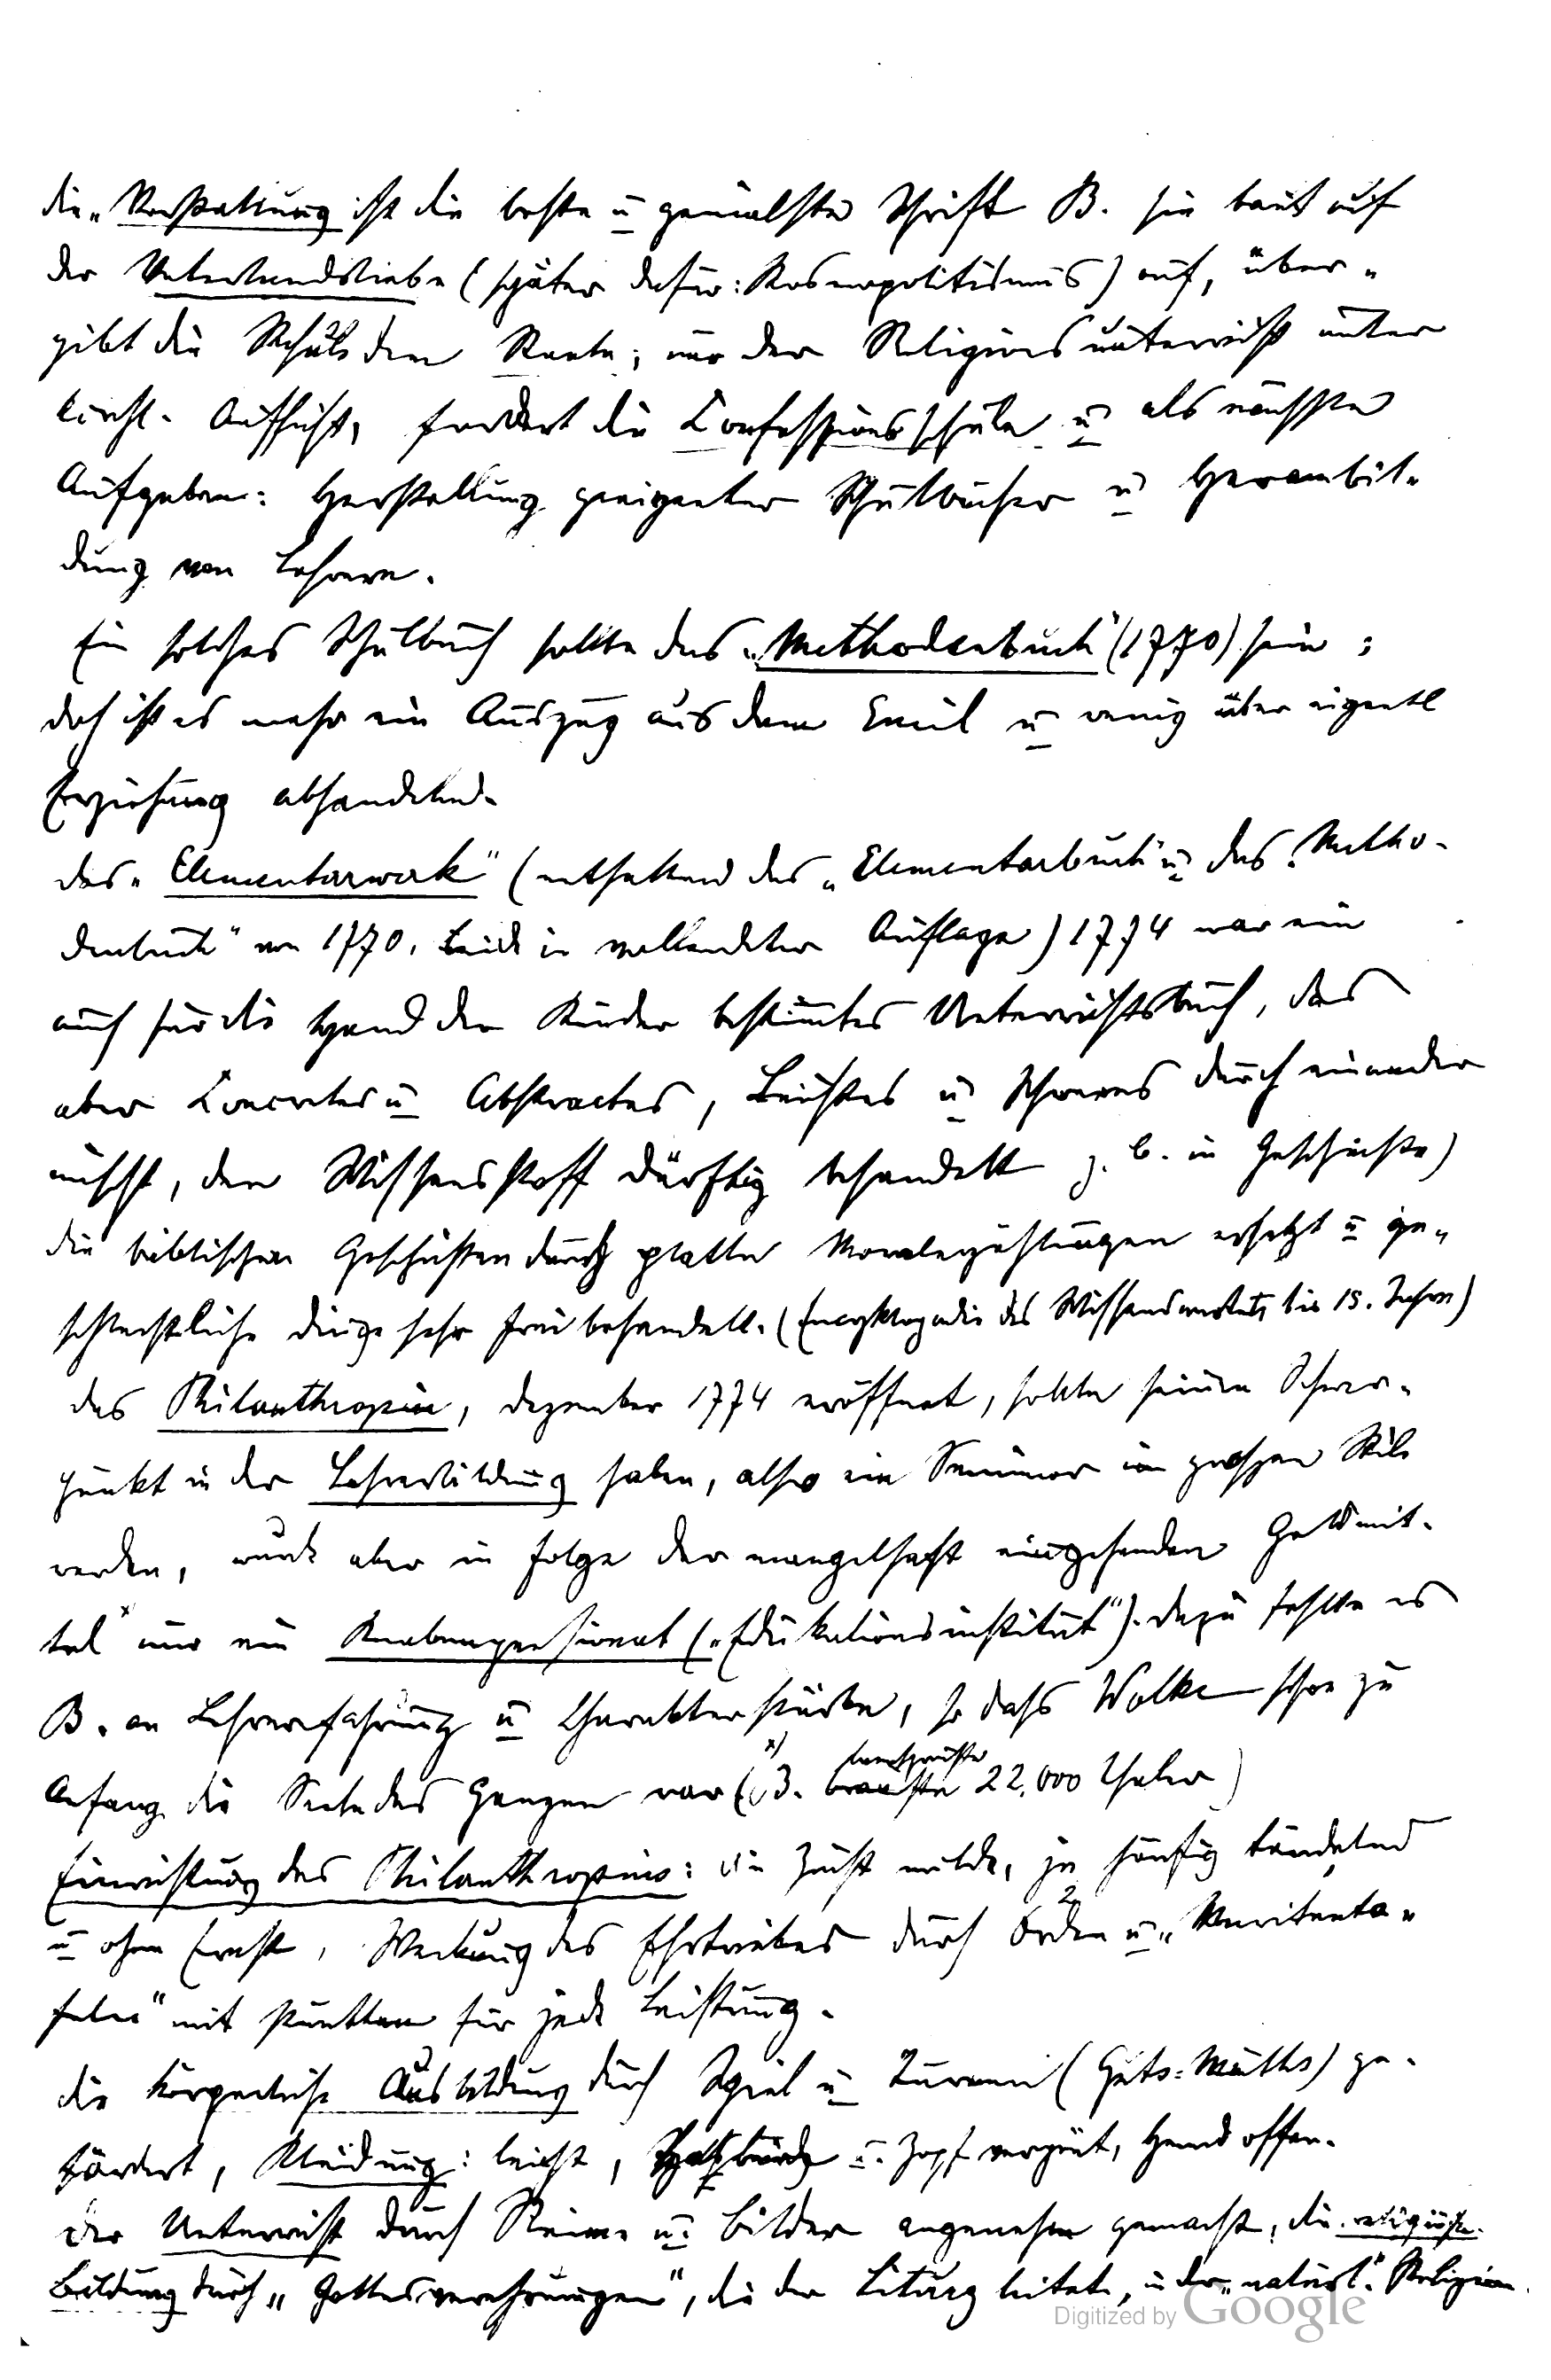 die „Vorstellung ist die beste u genialste Schrift B. sie baut auf
der Vaterlandsliebe (später dafür: Kosmopolitismus) auf, über„
gibt die Schule dem Staate; nur der Religionsunterricht unter
kirchl. Aufsicht, fordert die Confessionsschule u als nächste
Aufgaben: Herstellung geeigneter Schulbücher u Heranbil„
dung von Lehrern.
Ein solches Schulbuch sollte das „Methodenbuch" (1770) sein;
doch ist es mehr ein Auszug aus dem Emil u wenig über eigentl
Erziehung abhandelnd.
das „Elementarwerk" (enthaltend das „Elementarbuch" u das „Metho-
denbuch" von 1770, beide in vollendeter Auflage) 1774 war ein
auch für die Hand der Kinder bestimtes Unterrichtsbuch, das
aber Concretes u Abstractes, Leichtes u Schweres durch einander
mischt, den Wissensstoff dürftig behandelt z. b. in Geschichte)
die biblischen Geschichten durch platte Moralerzählungen ersetzt u ge„
schlechtliche Dinge sehr frei behandelt. (Encyklopädie des Wissenswertesten bis 15. Jahre)
das Philanthropin, Dezember 1774 eröffnet, sollte seinen Schwer-
punkt in der Lehrerbildung haben, also ein Seminar im grossen Stile
werden, wurde aber in Folge der mangelhaft eingehenden Geldmit-
tel x nur ein Knabenpensionat („Edukationsinstitut"). Dazu fehlte es
B. an Lehrerfahrung u Charakterstärke, so dass Wolke schon zu
Anfang die Seele des Ganzen war (x) B. brauchte 22.000 Thaler)
Einrichtung des Philanthropins: die Zucht milde, ja häufig tändelnd
u ohne Ernst, Weckung des Ehrtriebes durch 2 Orden u „Meritenta„
feln" mit Punkten für jede Leistung.
die körperliche Ausbildung durch Spiel u Turnen (Guts-Muths) ge-
fördert, Kleidung: leicht, u. Zopf verpönt, Hemd offen.
der Unterricht durch Reime u. Bilder angenehm gemacht, die religiöse
Bildung durch „Gottesverehrungen", die der Liturg leitete, in der „natürl." Religion.
Digitized by Google